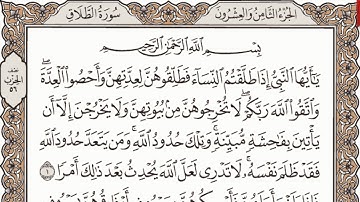 سُورَةُ الطَّلَاقِ
الجُزءُ الثَّامِنُ وَالعِشْرُونَ
بِسْمِ اللَّهِ الرَّحْمَٰنِ الرَّحِيمِ
يَٰٓأَيُّهَا ٱلنَّبِىُّ إِذَا طَلَّقْتُمُ ٱلنِّسَآءَ فَطَلِّقُوهُنَّ لِعِدَّتِهِنَّ وَأَحْصُوا۟ ٱلْعِدَّةَ ۖ
وَٱتَّقُوا۟ ٱللَّهَ رَبَّكُمْ ۖ لَا تُخْرِجُوهُنَّ مِنۢ بُيُوتِهِنَّ وَلَا يَخْرُجْنَ إِلَّآ أَن
يَأْتِينَ بِفَٰحِشَةٍ مُّبَيِّنَةٍ ۚ وَتِلْكَ حُدُودُ ٱللَّهِ ۚ وَمَن يَتَعَدَّ حُدُودَ ٱللَّهِ
فَقَدْ ظَلَمَ نَفْسَهُۥ ۚ لَا تَدْرِى لَعَلَّ ٱللَّهَ يُحْدِثُ بَعْدَ ذَٰلِكَ أَمْرًا ١
الحزب
٥٦